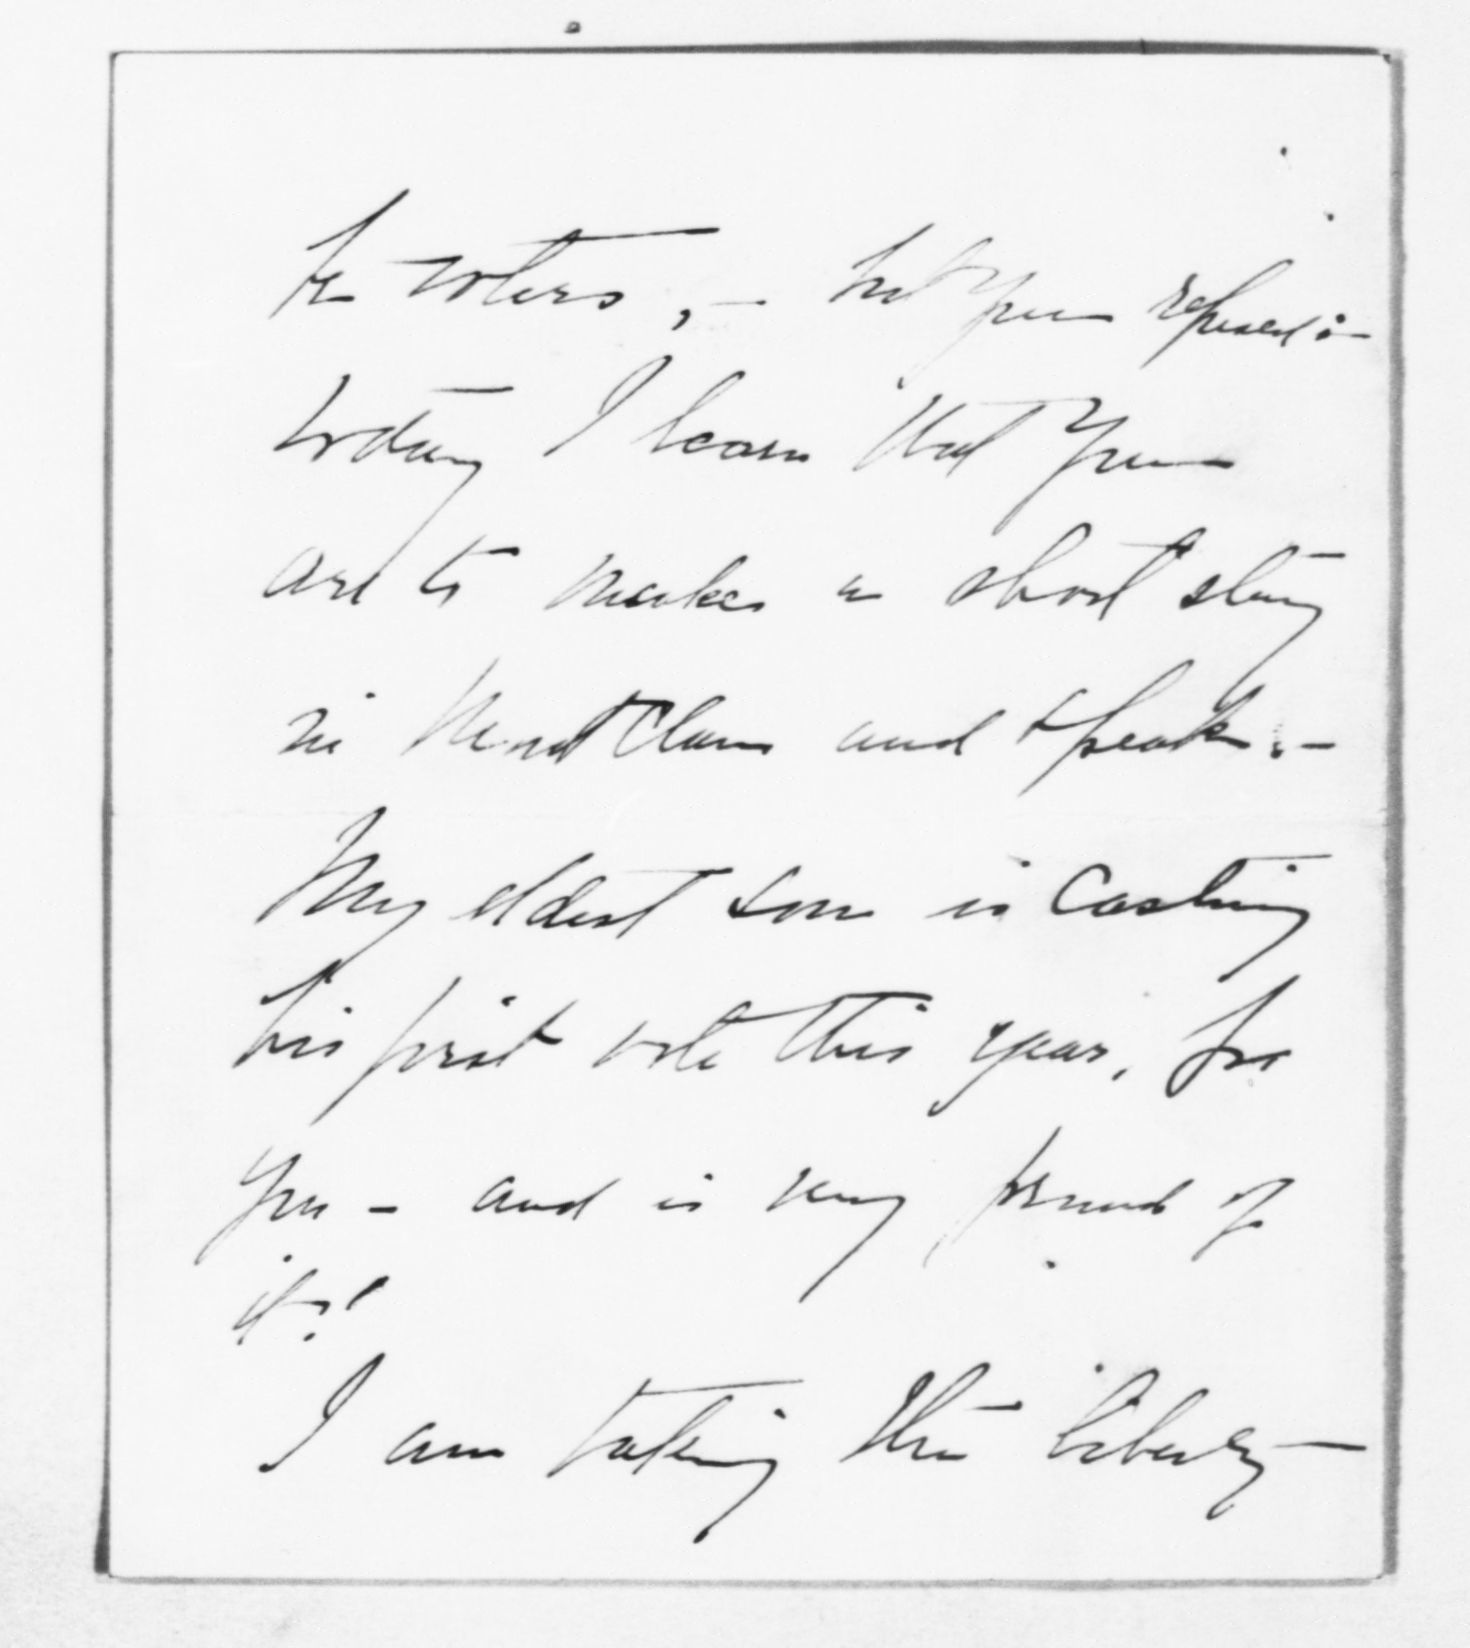 the voters, – but you refused :–
today I learn that you
are to make a short stay
in Montclair and speak. –
My eldest son is casting
his first vote this year, for
you – and is very proud of
it!
I am taking the liberty –